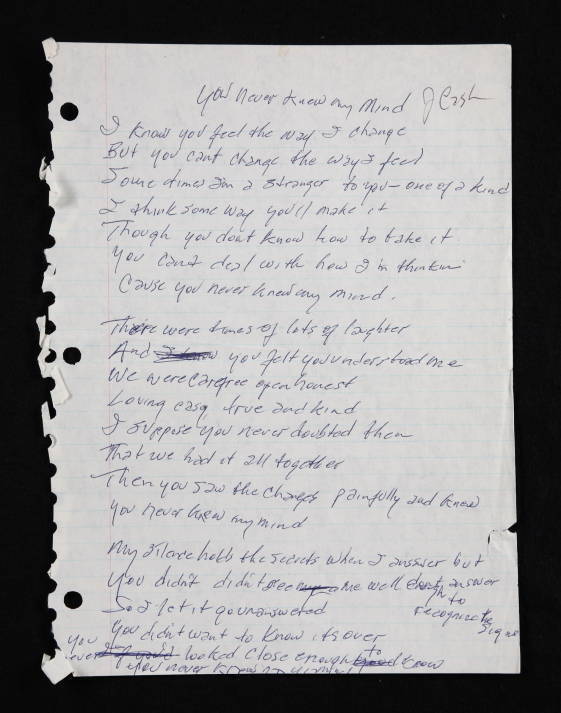 You Never Knew my Mind J Cash
I know you feel the way I change
But you cant change the way I feel
Some times Im a stranger to you - one of a kind
I think some way you'll make it
Though you dont know how to take it
You cant deal with how I'm thinkin
Cause you never knew my mind.
There were times of lots of laughter
And you felt you understood me
We were carefree open honest
Loving easy, true and kind
I suppose you never doubted then
That we had it all together
Then you saw the changes painfully and knew
you never knew my mind
My silence holds the secrets when I answer but
You didn't didn't see me well answer
So I let it go unanswered to recognize the signs
You didn't want to know its over
You never looked close enough to know
You never knew my mind